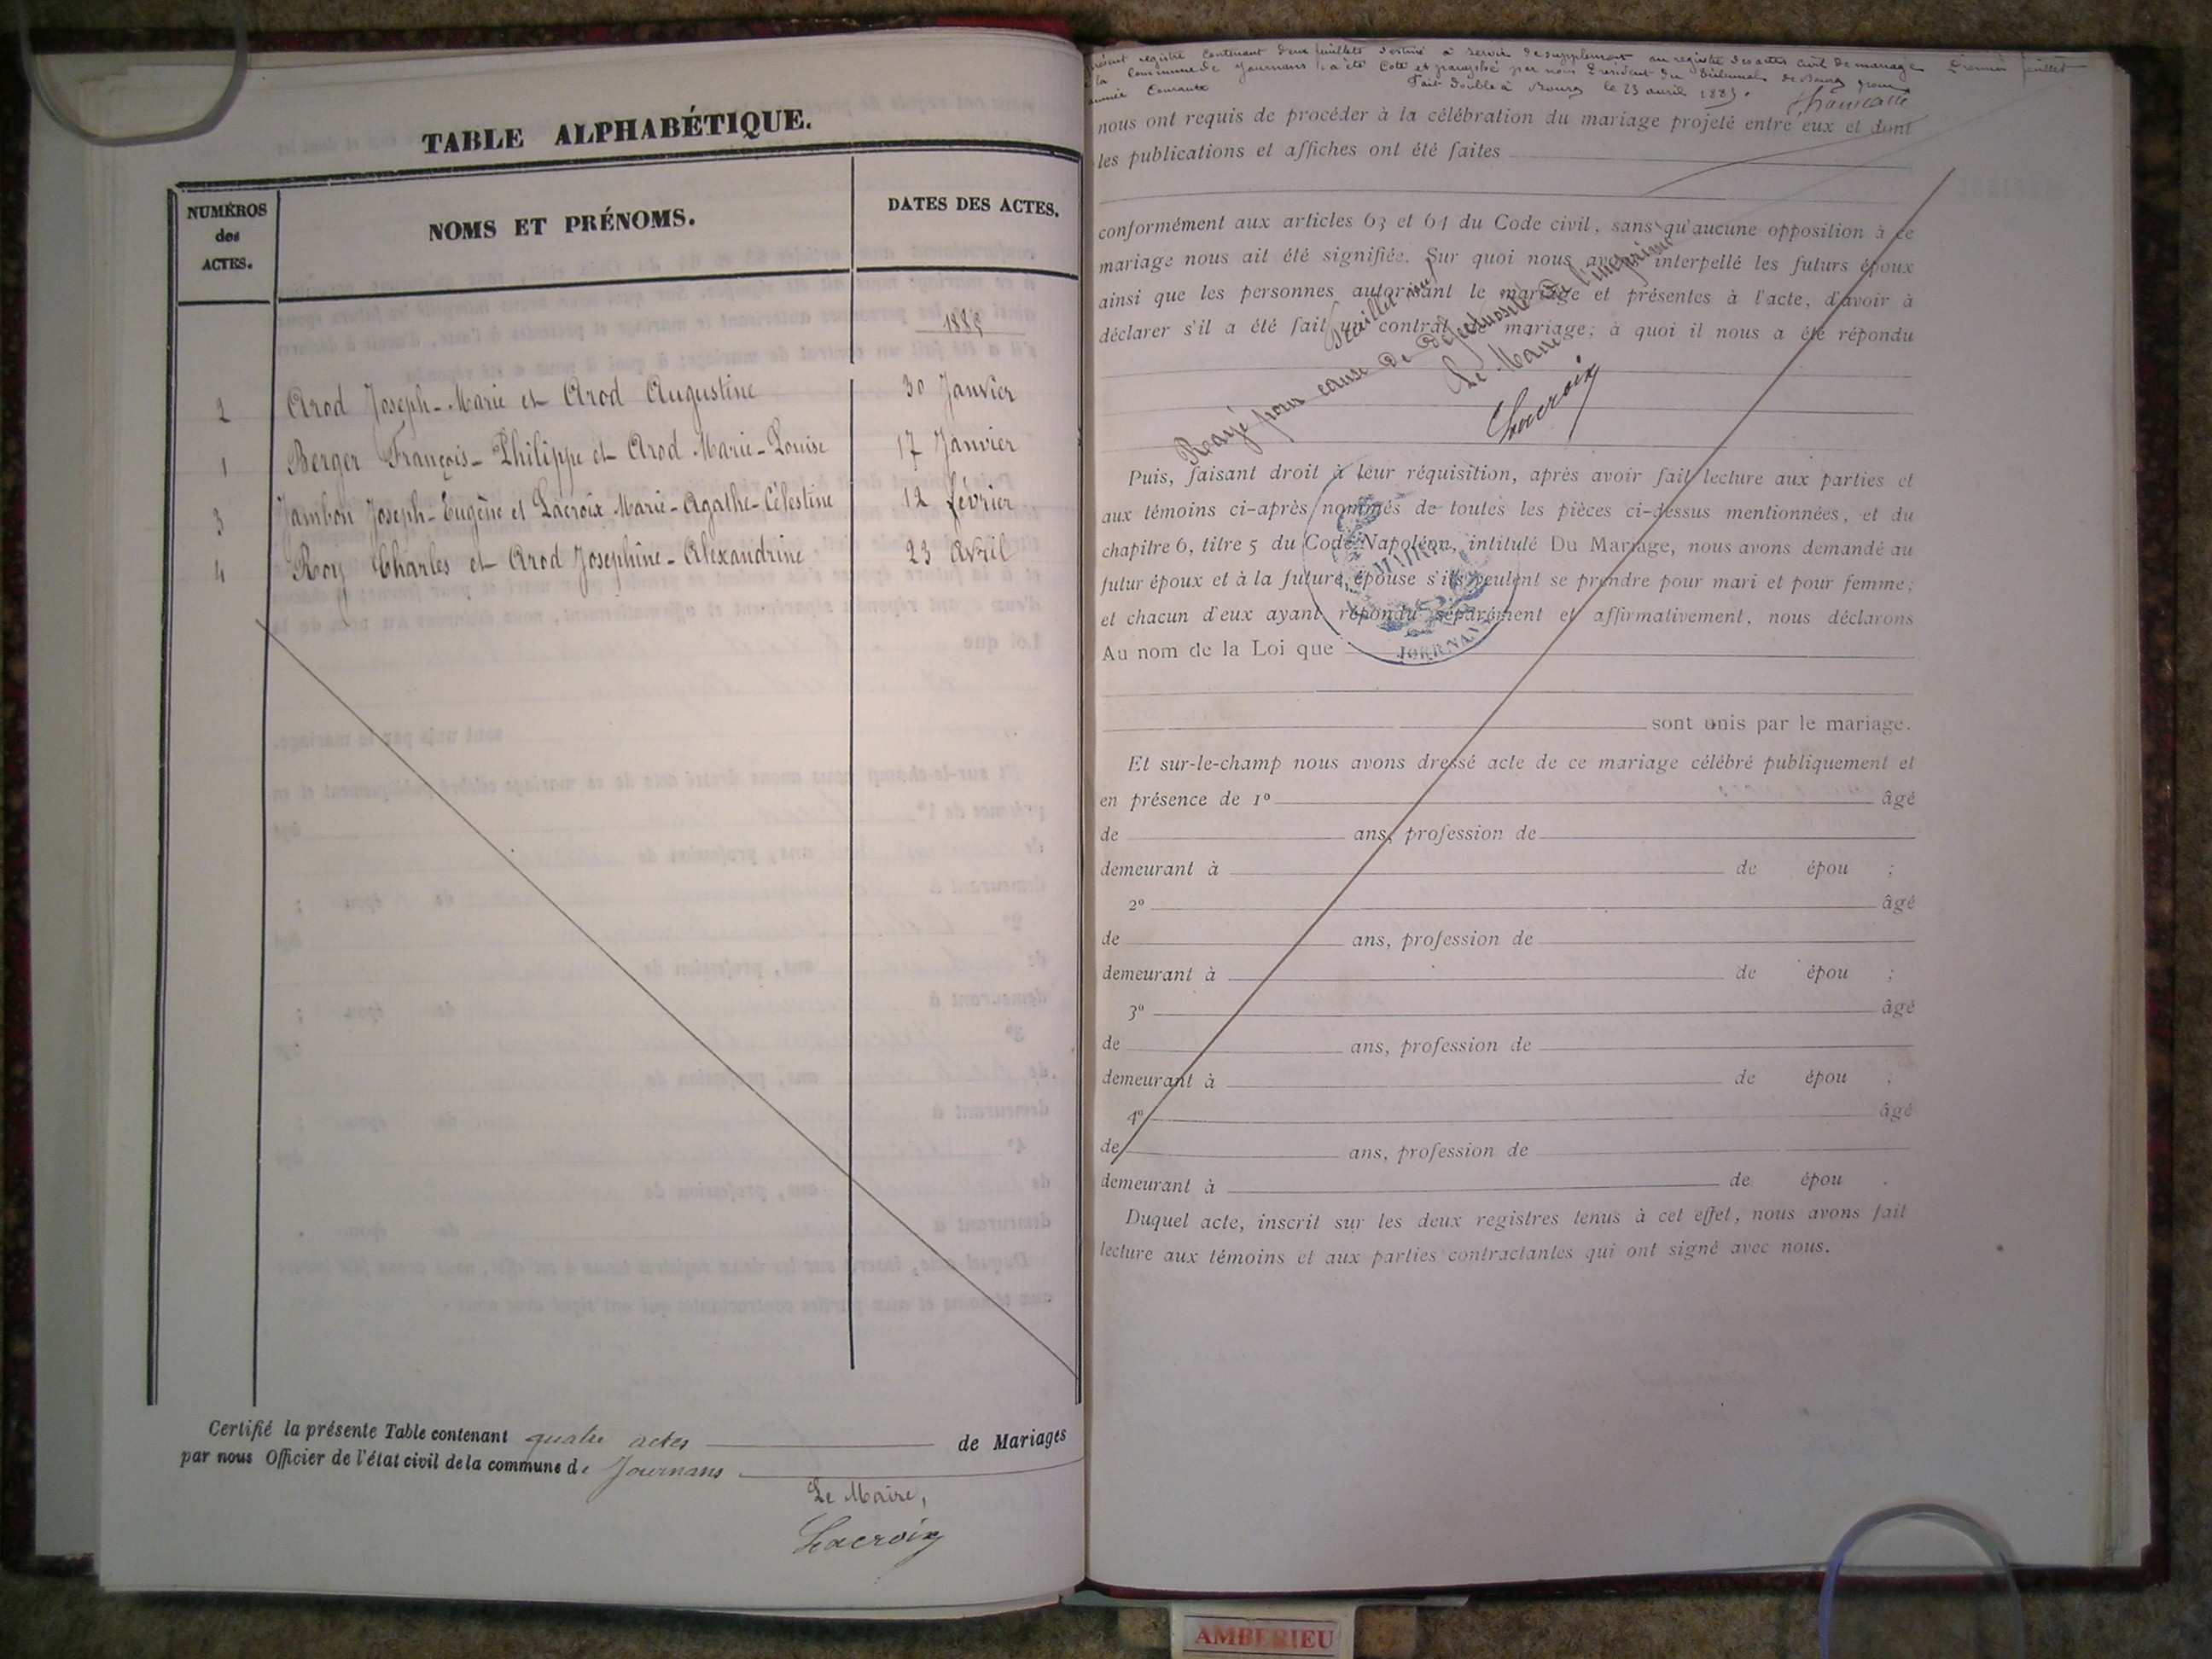 TABLE ALPHABÉTIQUE.
NUMÉROS
des
ACTES.
NOMS ET PRÉNOMS.
DATES DES ACTES.
1885
2 Arod Joseph-Marie et Arod Augustine 30 Janvier
1 Berger François-Philippe et Arod Marie-Louise 17 Janvier
3 Jambon Joseph-Eugène et Lacroix Marie-Agathe-Célestine 12 février
4 Roy Charles et Arod Josephine-Alexandrine 23 Avril
Certifié la présente Table contenant quatre actes de Mariages
par nous Officier de l'état civil de la commune de Journans
Le Maire,
Lacroix
présent registre contenant deux feuillets destiné à servir de supplément au registre des actes civil de mariage Premier feuillet
la Commune de Journans a été coté et paraphé par nous Président du Tribunal de Bourg
année courante Fait double à Bourg le 23 avril 1885.
nous ont requis de procéder à la célébration du mariage projeté entre eux et dont
les publications et affiches ont été faites
conformément aux articles 63 et 64 du Code civil, sans qu'aucune opposition à ce
mariage nous ait été signifiée. Sur quoi nous avons interpellé les futurs époux
ainsi que les personnes autorisant le mariage et présentes à l'acte, d'avoir à
déclarer s'il a été fait un contrat de mariage; à quoi il nous a été répondu
Feuillet nul
Rayé pour cause de défectuosité de l'imprimé
Le Maire
Lacroix
Puis, faisant droit à leur réquisition, après avoir fait lecture aux parties et
aux témoins ci-après nommés de toutes les pièces ci-dessus mentionnées, et du
chapitre 6, titre 5 du Code Napoléon, intitulé Du Mariage, nous avons demandé au
futur époux et à la future épouse s'ils veulent se prendre pour mari et pour femme;
et chacun d'eux ayant répondu séparément et affirmativement, nous déclarons
Au nom de la Loi que
MAIRIE
JOURNANS
sont unis par le mariage.
Et sur-le-champ nous avons dressé acte de ce mariage célébré publiquement et
en présence de 1º âgé
de ans, profession de
demeurant à de épou ;
2º âgé
de ans, profession de
demeurant à de épou ;
3º âgé
de ans, profession de
demeurant à de épou ;
4º âgé
de ans, profession de
demeurant à de épou .
Duquel acte, inscrit sur les deux registres tenus à cet effet, nous avons fait
lecture aux témoins et aux parties contractantes qui ont signé avec nous.
AMBERIEU